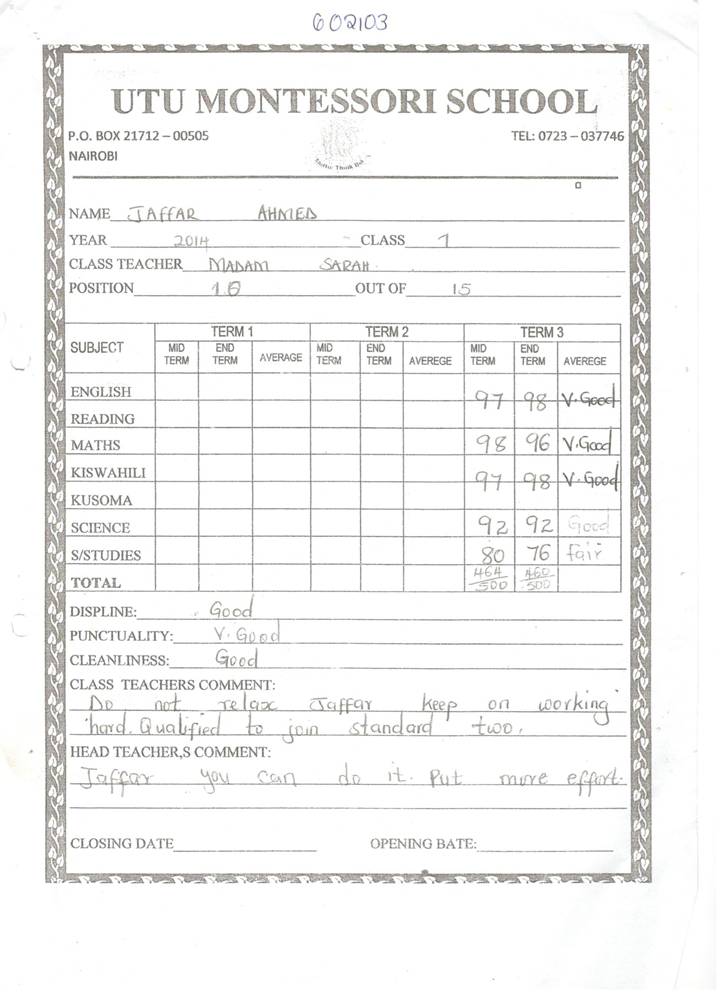 602103
UTU MONTESSORI SCHOOL
P.O. BOX 21712 – 00505 TEL: 0723 – 037746
NAIROBI
NAME JAFFAR AHMED
YEAR 2014 CLASS 1
CLASS TEACHER MADAM SARAH.
POSITION 10 OUT OF 15
SUBJECT TERM 1 TERM 2 TERM 3
MID TERM END TERM AVERAGE MID TERM END TERM AVEREGE MID TERM END TERM AVEREGE
ENGLISH 97 98 V.Good
READING
MATHS 98 96 V.Good
KISWAHILI 97 98 V.Good
KUSOMA
SCIENCE 92 92 Good
S/STUDIES 80 76 fair
TOTAL 464/500 460/500
DISPLINE: Good
PUNCTUALITY: V. Good
CLEANLINESS: Good
CLASS TEACHERS COMMENT:
Do not relax Jaffar keep on working
hard. Qualified to join standard two.
HEAD TEACHER,S COMMENT:
Jaffar you can do it. Put more effort.
CLOSING DATE OPENING BATE: